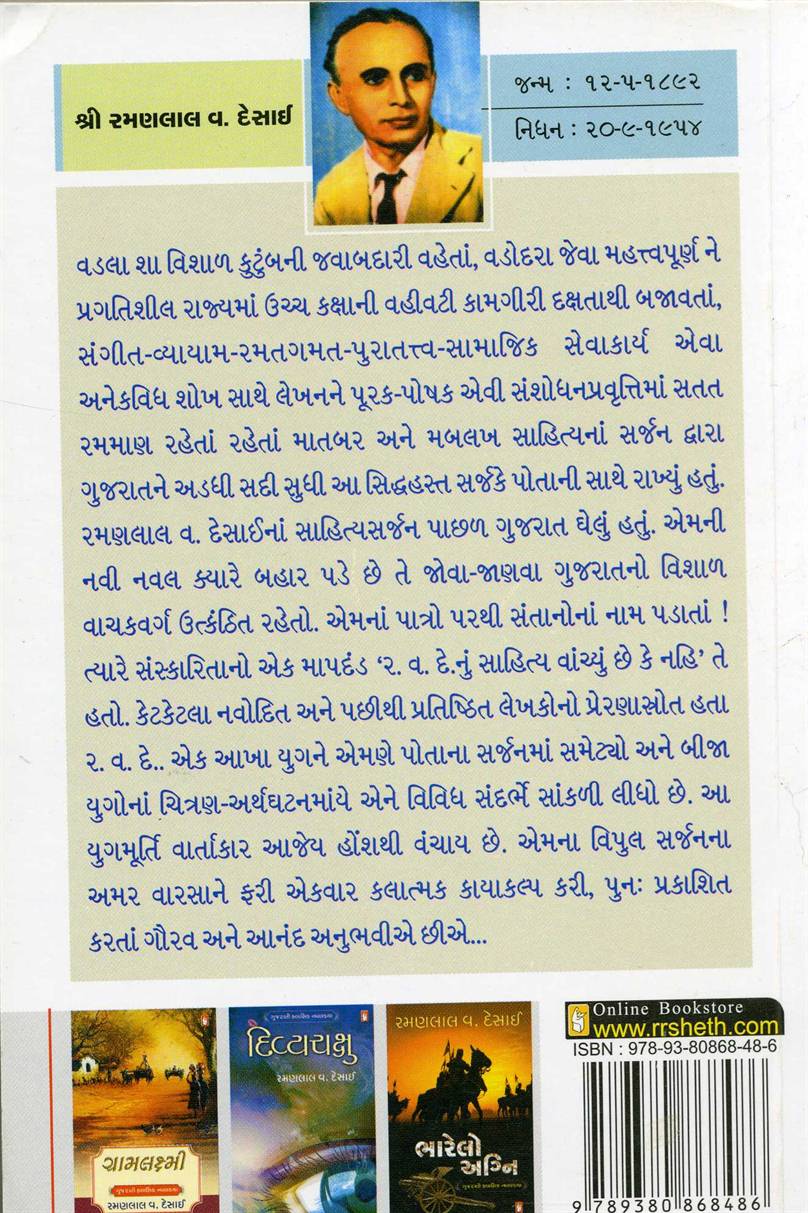 શ્રી રમણલાલ વ. દેસાઈ
જન્મ : ૧૨-૫-૧૮૯૨
નિધન : ૨૦-૯-૧૯૫૪
વડલા શા વિશાળ કુટુંબની જવાબદારી વહેતાં, વડોદરા જેવા મહત્ત્વપૂર્ણ ને
પ્રગતિશીલ રાજ્યમાં ઉચ્ચ કક્ષાની વહીવટી કામગીરી દક્ષતાથી બજાવતાં,
સંગીત-વ્યાયામ-રમતગમત-પુરાતત્ત્વ-સામાજિક સેવાકાર્ય એવા
અનેકવિધ શોખ સાથે લેખનને પૂરક-પોષક એવી સંશોધનપ્રવૃત્તિમાં સતત
રમમાણ રહેતાં રહેતાં માતબર અને મબલખ સાહિત્યનાં સર્જન દ્વારા
ગુજરાતને અડધી સદી સુધી આ સિદ્ધહસ્ત સર્જકે પોતાની સાથે રાખ્યું હતું.
રમણલાલ વ. દેસાઈનાં સાહિત્યસર્જન પાછળ ગુજરાત ઘેલું હતું. એમની
નવી નવલ ક્યારે બહાર પડે છે તે જોવા-જાણવા ગુજરાતનો વિશાળ
વાચકવર્ગ ઉત્કંઠિત રહેતો. એમનાં પાત્રો પરથી સંતાનોનાં નામ પડાતાં !
ત્યારે સંસ્કારિતાનો એક માપદંડ ‘ર. વ. દે.નું સાહિત્ય વાંચ્યું છે કે નહિ’ તે
હતો. કેટકેટલા નવોદિત અને પછીથી પ્રતિષ્ઠિત લેખકોનો પ્રેરણાસ્રોત હતા
ર. વ. દે.. એક આખા યુગને એમણે પોતાના સર્જનમાં સમેટ્યો અને બીજા
યુગોનાં ચિત્રણ-અર્થઘટનમાંયે એને વિવિધ સંદર્ભે સાંકળી લીધો છે. આ
યુગમૂર્તિ વાર્તાકાર આજેય હોંશથી વંચાય છે. એમના વિપુલ સર્જનના
અમર વારસાને ફરી એકવાર કલાત્મક કાયાકલ્પ કરી, પુનઃ પ્રકાશિત
કરતાં ગૌરવ અને આનંદ અનુભવીએ છીએ...
ગ્રામલક્ષ્મી
ગુજરાતી ક્લાસિક નવલકથા
રમણલાલ વ. દેસાઈ
ગુજરાતી ક્લાસિક નવલકથા
દિવ્યચક્ષુ
રમણલાલ વ. દેસાઈ
રમણલાલ વ. દેસાઈ
ભારેલો
અગ્નિ
ગુજરાતી ક્લાસિક નવલકથા
Online Bookstore
www.rrsheth.com
ISBN : 978-93-80868-48-6
9 789380 868486